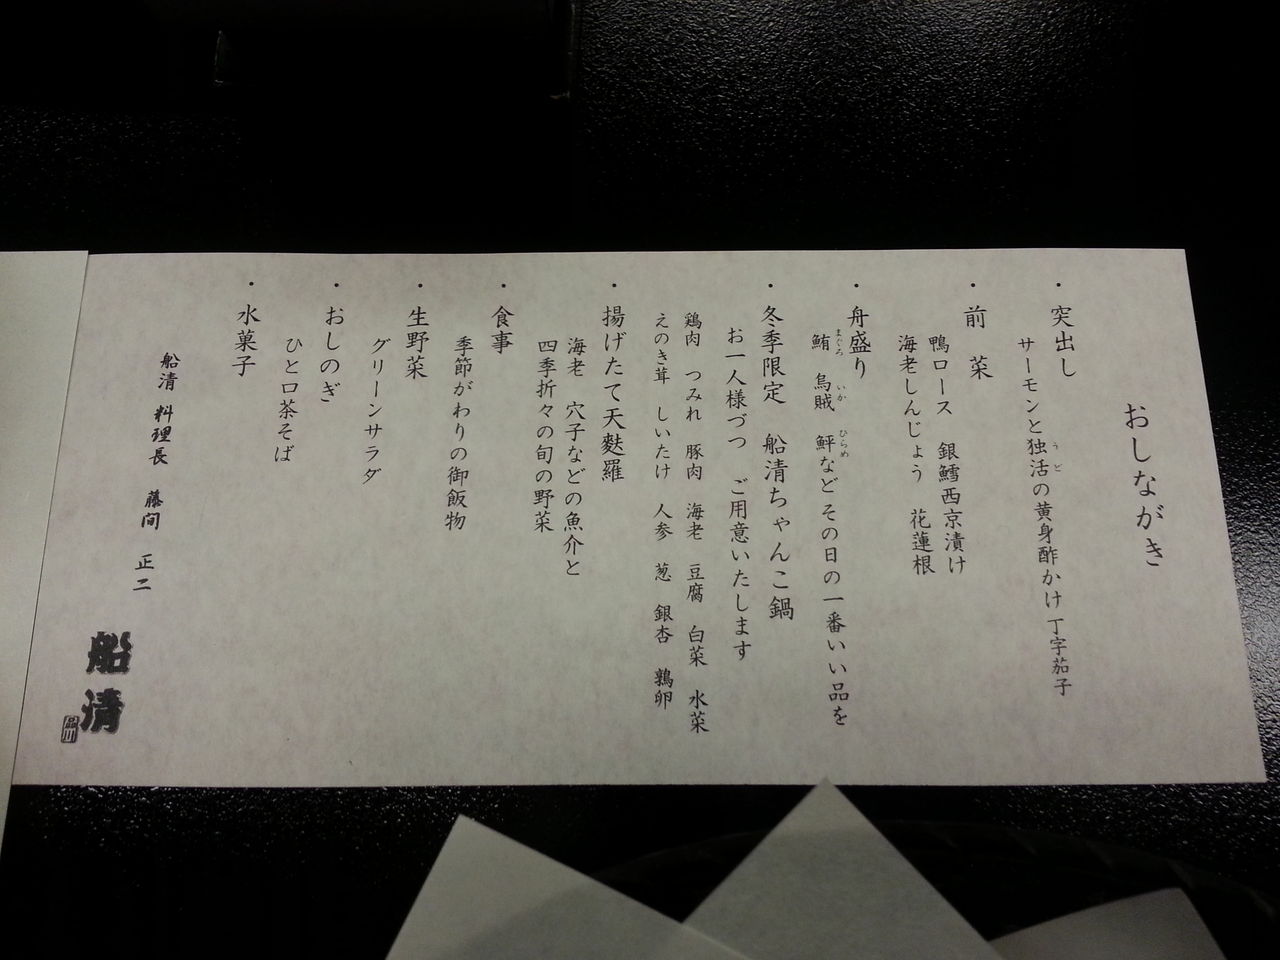 おしながき
・突出し
サーモンと独活の黄身酢かけ 丁字茄子
うど
・前 菜
鴨ロース 銀鱈西京漬け
海老しんじょう 花蓮根
・舟盛り
鮪 烏賊 鮃などその日の一番いい品を
まぐろ いか ひらめ
・冬季限定 船清ちゃんこ鍋
お一人様づつ ご用意いたします
鶏肉 つみれ 豚肉 海老 豆腐 白菜 水菜
えのき茸 しいたけ 人参 葱 銀杏 鶉卵
・揚げたて天麩羅
海老 穴子などの魚介と
四季折々の旬の野菜
・食事
季節がわりの御飯物
・生野菜
グリーンサラダ
・おしのぎ
ひと口茶そば
・水菓子
船清 料理長 藤間 正二
船清
品川